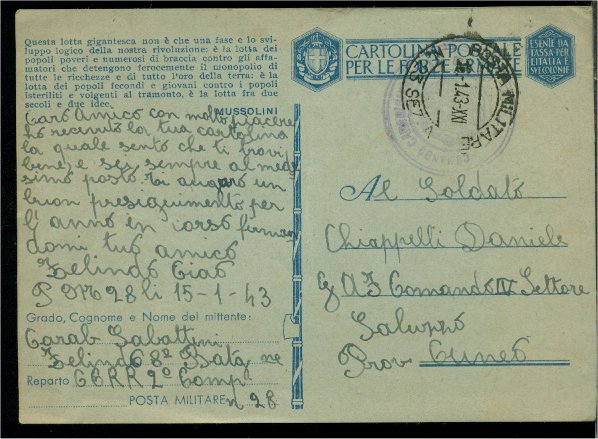 Questa lotta gigantesca non è che una fase e lo svi-
luppo logico della nostra rivoluzione: è la lotta dei
popoli poveri e numerosi di braccia contro gli affa-
matori che detengono ferocemente il monopolio di
tutte le ricchezze e di tutto l'oro della terra: è la
lotta dei popoli fecondi e giovani contro i popoli
isteriliti e volgenti al tramonto, è la lotta fra due
secoli e due idee.
MUSSOLINI
Caro Amico con molto piacere
ho ricevuto la tua cartolina
la quale sento che ti trovi
bene, e sei sempre al mede
simo posto. Ti auguro un
buon proseguimento per
l'anno in corso firman
domi tuo amico
Zelindo Ciao
P M 28 li 15-1-43
Grado, Cognome e Nome del mittente:
Carab. Sabattini
Zelindo 68º Batag ne
Reparto CCRR 2º Compª
POSTA MILITARE n 28
CARTOLINA POSTALE
PER LE FORZE ARMATE
ESENTE DA
TASSA PER
L'ITALIA E
SVE COLONIE
POSTA MILITARE
1.43-XXI
Al Soldato
Chiappelli Daniele
G A F Comando IV Settore
Saluzzo
Prov Cuneo